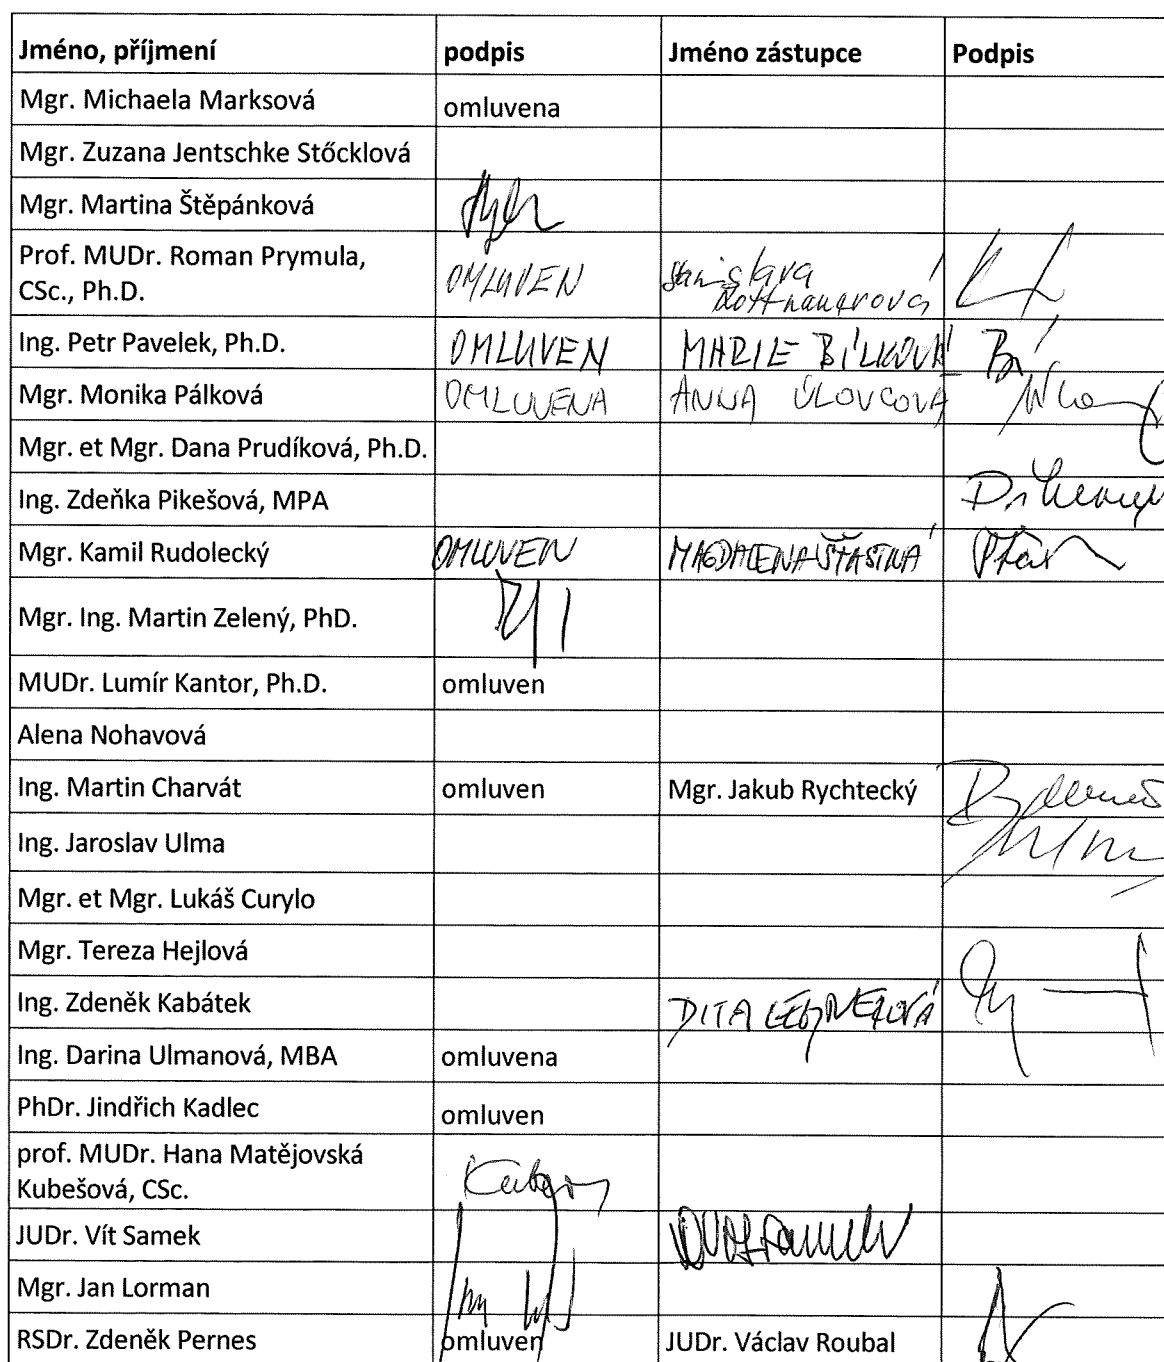 Jméno, příjmení podpis Jméno zástupce Podpis
Mgr. Michaela Marksová omluvena
Mgr. Zuzana Jentschke Stőcklová
Mgr. Martina Štěpánková
Prof. MUDr. Roman Prymula,
CSc., Ph.D. OMLUVEN Stanislava
Ing. Petr Pavelek, Ph.D. OMLUVEN MARIE BÍLKOVÁ
Mgr. Monika Pálková OMLUVENA ANNA ÚLOVCOVÁ
Mgr. et Mgr. Dana Prudíková, Ph.D.
Ing. Zdeňka Pikešová, MPA
Mgr. Kamil Rudolecký OMLUVEN MAGDALENA ŠŤASTNÁ
Mgr. Ing. Martin Zelený, PhD.
MUDr. Lumír Kantor, Ph.D. omluven
Alena Nohavová
Ing. Martin Charvát omluven Mgr. Jakub Rychtecký
Ing. Jaroslav Ulma
Mgr. et Mgr. Lukáš Curylo
Mgr. Tereza Hejlová
Ing. Zdeněk Kabátek DITA
Ing. Darina Ulmanová, MBA omluvena
PhDr. Jindřich Kadlec omluven
prof. MUDr. Hana Matějovská
Kubešová, CSc.
JUDr. Vít Samek
Mgr. Jan Lorman
RSDr. Zdeněk Pernes omluven JUDr. Václav Roubal